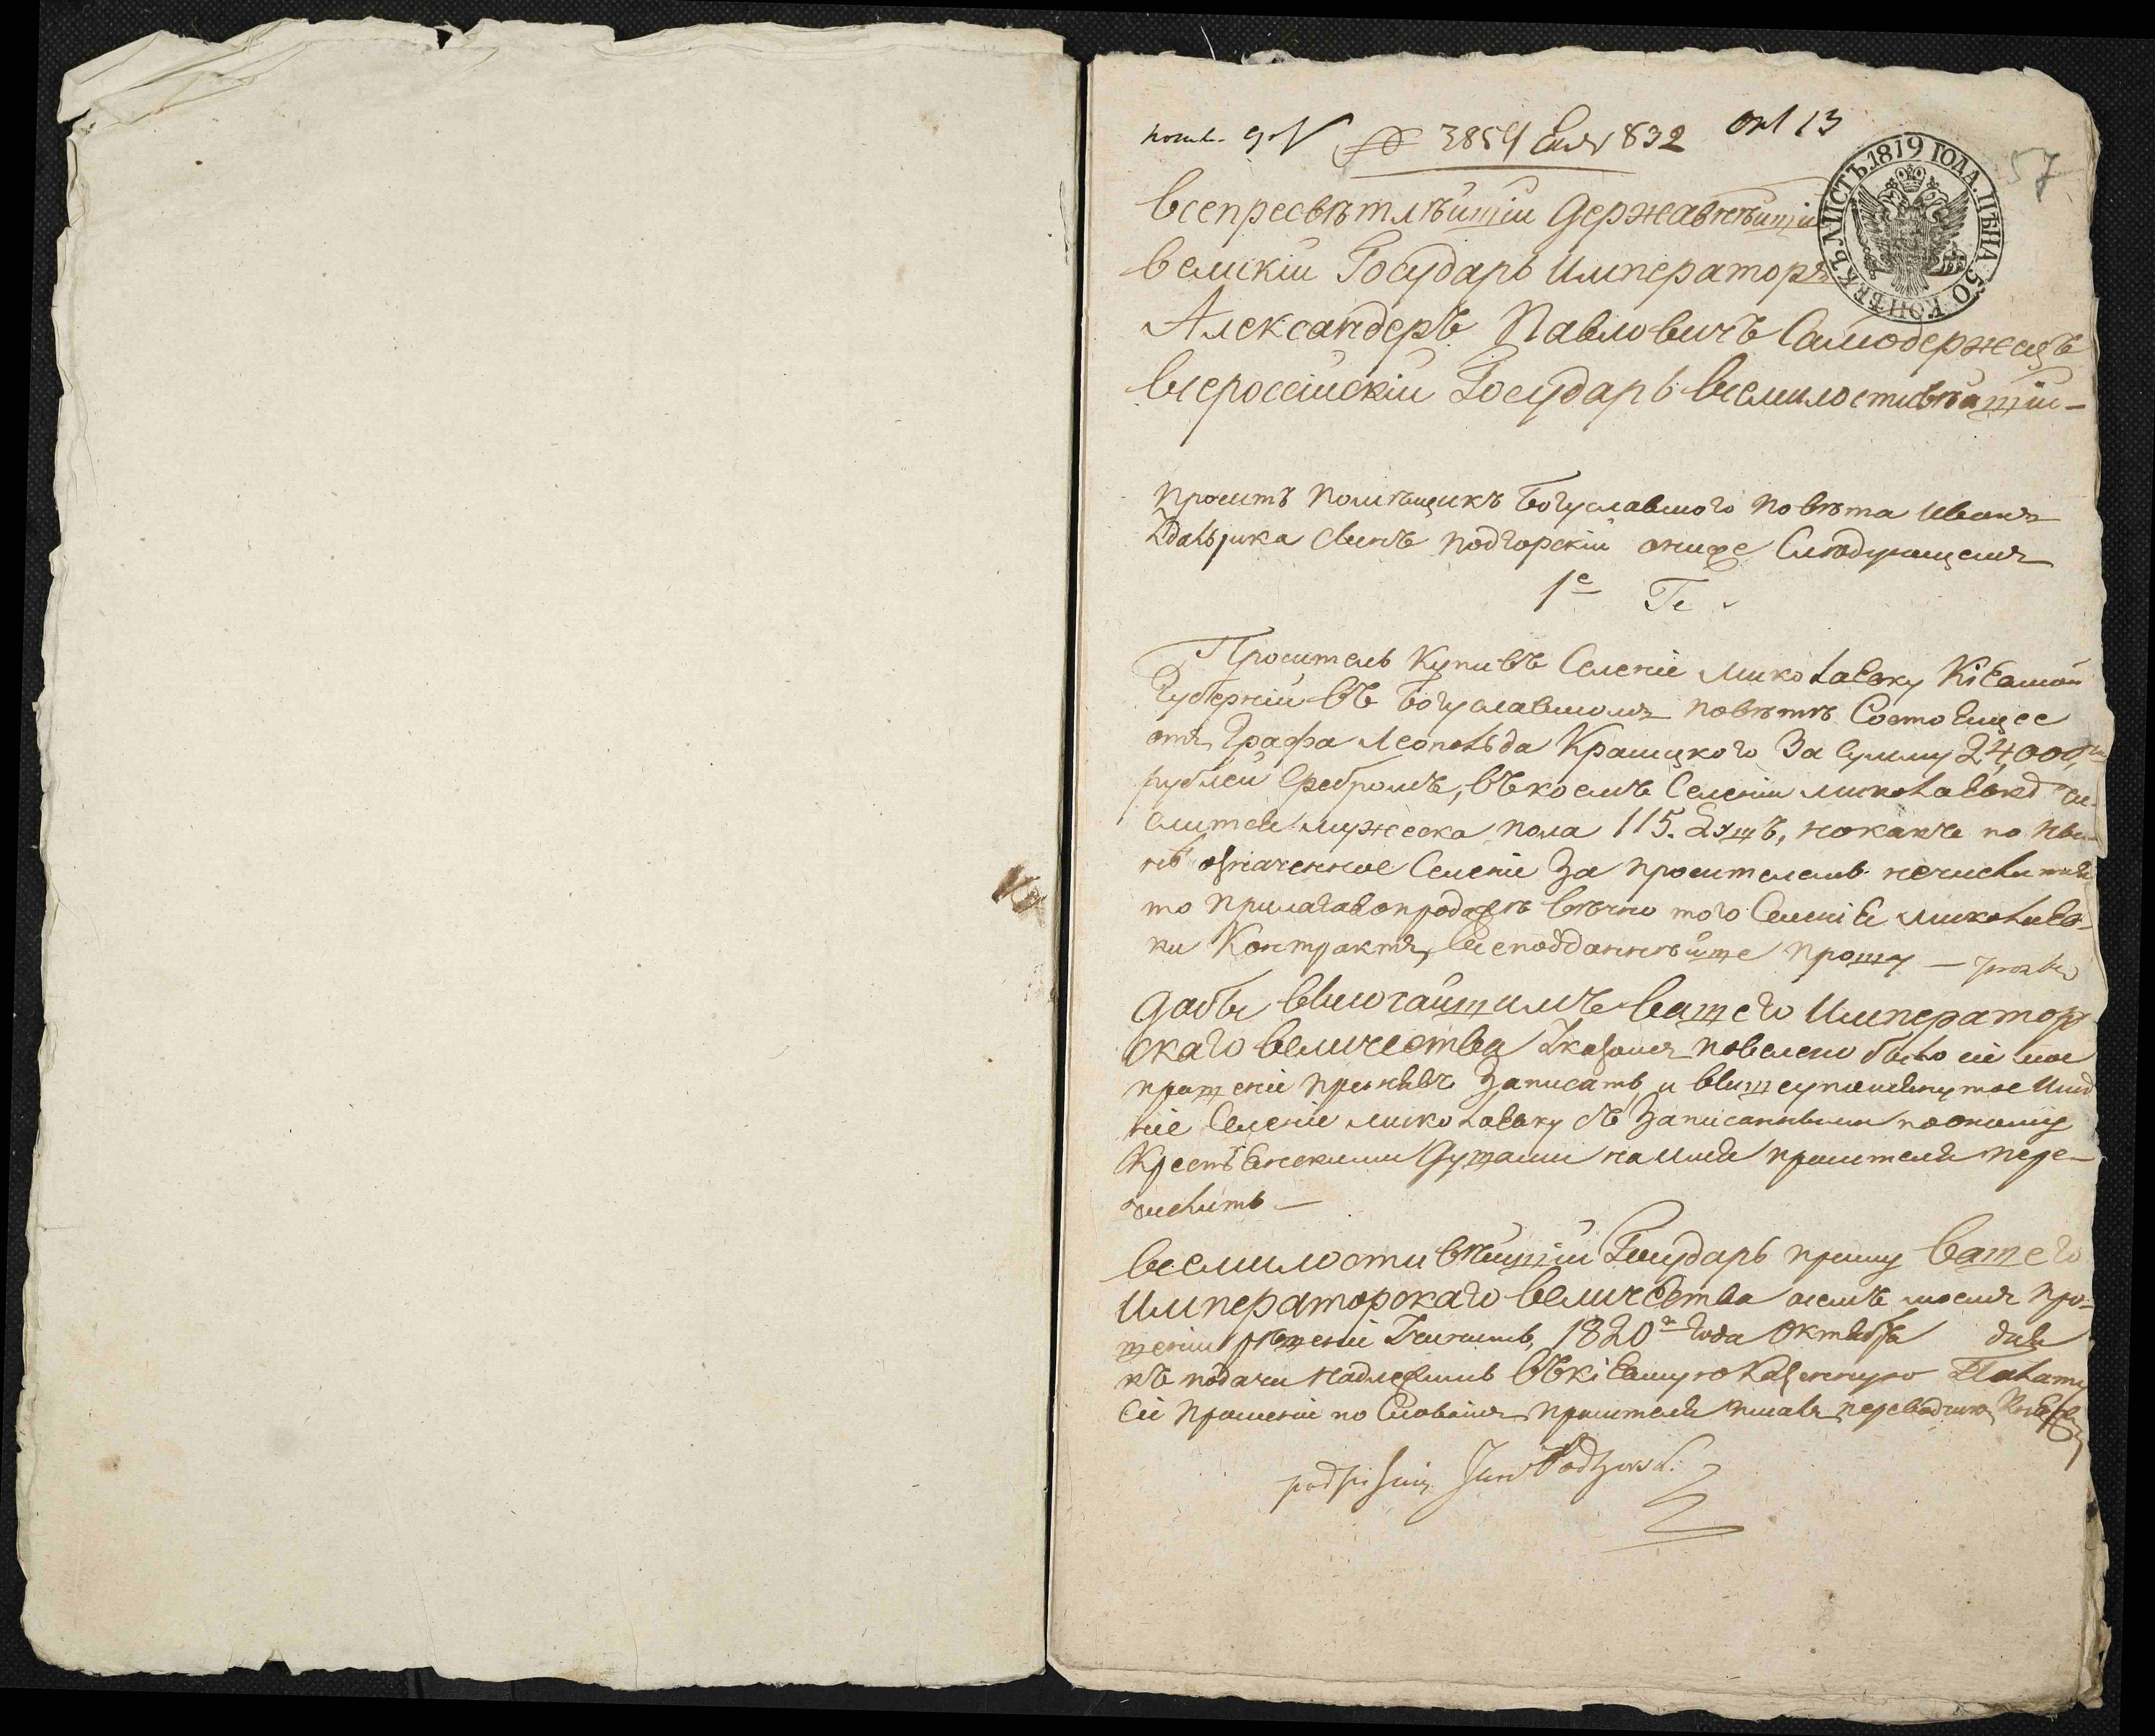 № 3854 832 Окт 13
57
ЛИСТЪ. 1819 ГОДА. ЦѢНА 50 КОПѢЕКЪ.
Всепресвѣтлѣйшій Державнѣйшій
великій Государь Императоръ
Александеръ Павловичъ Самодержецъ
всеросейскій Государь всемилостивѣйшій —
проситъ помѣщикъ Богуславского повѣта Иванъ
сынъ подгорскій о ниже слѣдующемъ
1е
Проситель купивъ селеніе Миколаевку Кіевской
Губерніи въ Богуславскомъ повѣтѣ состоящее
отъ Графа Леопольда Красицкого за сумму 24,000
рублей сребромъ, въ коемъ селеніи Миколаевкѣ
мужеска пола 115. душъ, но какъ по ны-
нѣ означенное селеніе за просителемъ нечислится
то прилагая о продажѣ вѣчно того селенія Миколаев-
ки Контрактъ, всеподданнѣйше прошу —
дабы высочайшимъ вашего Император
скаго величества указомъ повелено было сіе мое
прошеніе принявъ записать, и вышеупомянутое имѣ
ніе селеніе Миколаевку съ записанными по оному
крестьянскими душами на имя просителя пере-
числить —
всемилостивѣйшій Государь прошу вашего
Императорскаго величества о семъ моемъ про-
шеніи рѣшеніе учинить, 1820 года октября дня
къ подачи надлежитъ въ кіевскую казенную Палату
сіе прошеніе по словамъ просителя писалъ переводчикъ